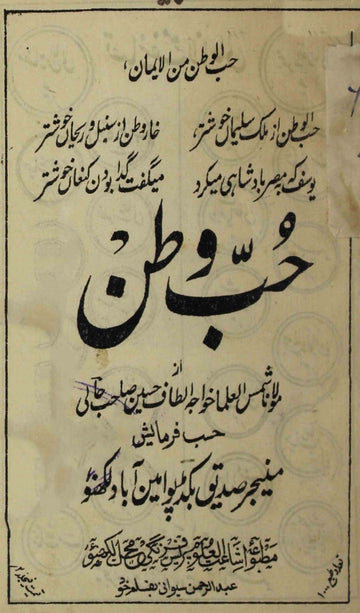 حب الوطن من الایمان،
حب الوطن از ملک سلیماں خوشتر، خار وطن از سنبل و ریحاں خوشتر
یوسف کہ بہ مصر بادشاہی میکرد میگفت گدا بودن کنعاں خوشتر
حُبِّ وطن
از
مولانا شمس العلما خواجہ الطاف حسین صاحب حالی
حسب فرمایش
منیجر صدیق بکڈپو امین آباد لکھنؤ
مطبوعہ اشاعت العلوم پریس فرنگی محل لکھنؤ
عبدالرحمن سیوانی بقلم خود